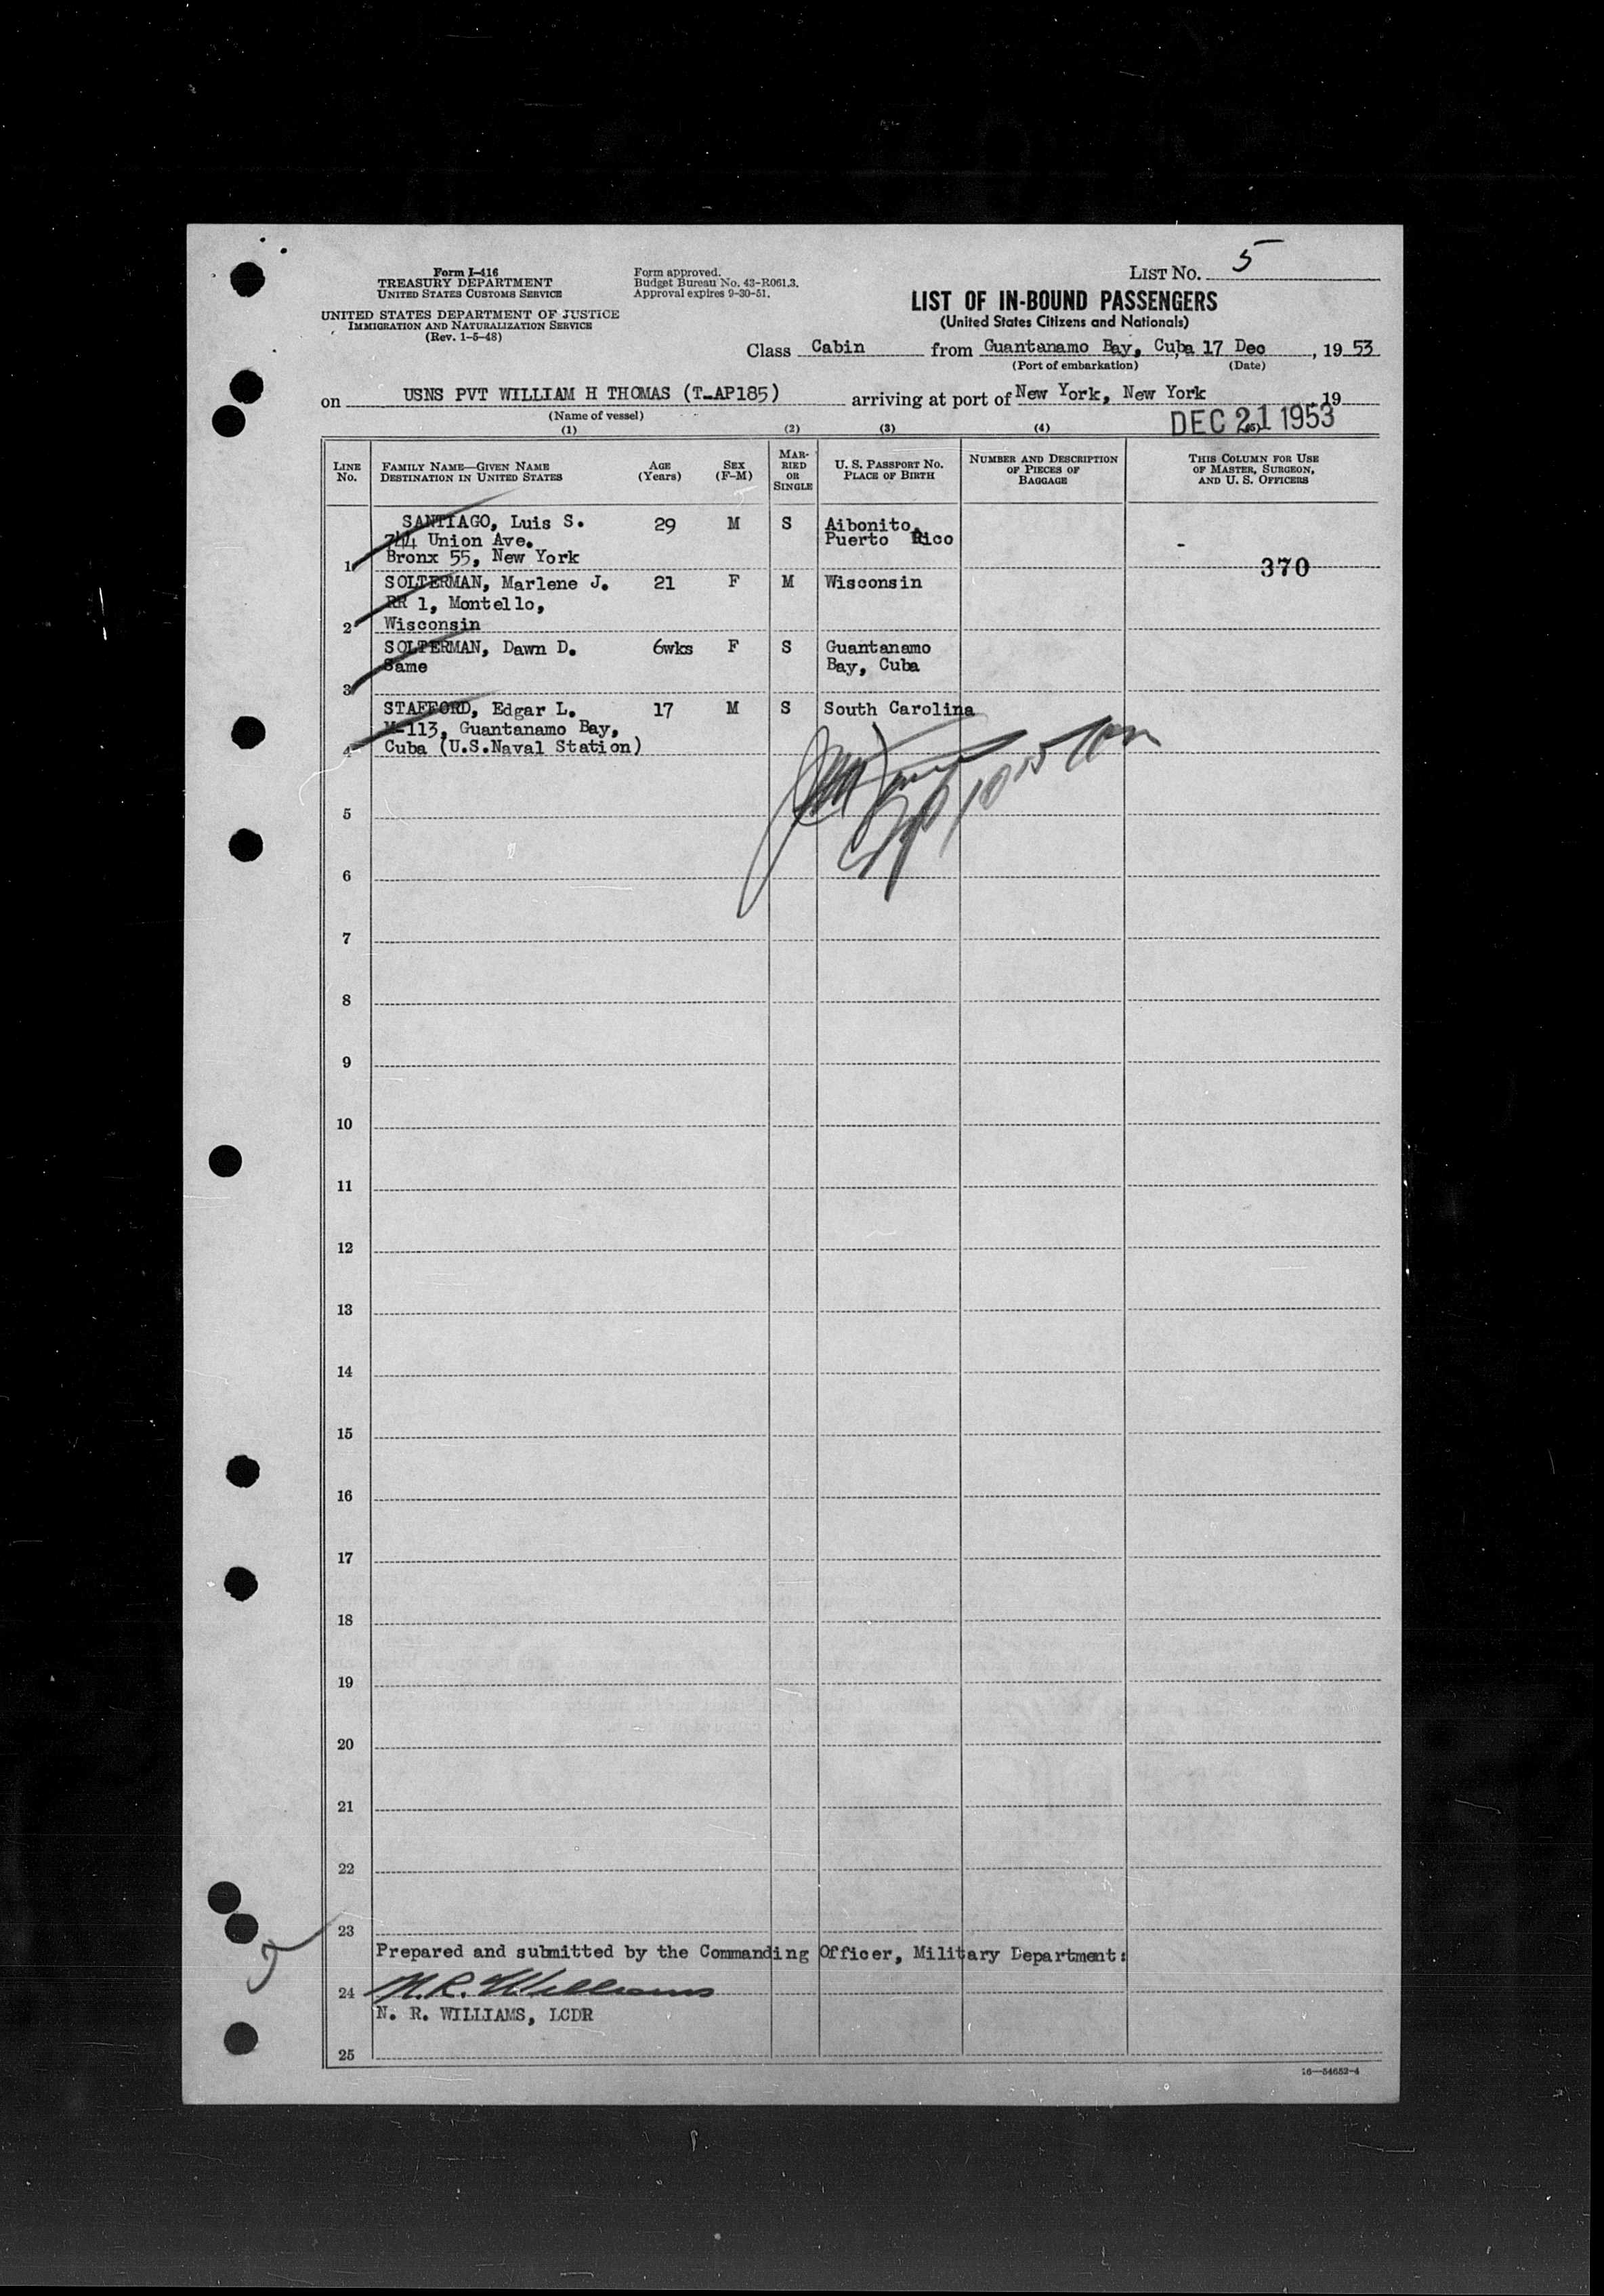 LIST NO. 5
Form I-416
TREASURY DEPARTMENT
UNITED STATES CUSTOMS SERVICE
UNITED STATES DEPARTMENT OF JUSTICE
IMMIGRATION AND NATURALIZATION SERVICE
(Rev. 1-5-48)
Form approved.
Budget Bureau No. 43-R061.3.
Approval expires 9-30-51.
LIST OF IN-BOUND PASSENGERS
(United States Citizens and Nationals)
Class Cabin from Guantanamo Bay, Cuba 17 Dec , 19 53
(Port of embarkation) (Date)
on USNS PVT WILLIAM H THOMAS (T-AP185) arriving at port of New York, New York , 19
(Name of vessel)
DEC 21 1953
(1) (2) (3) (4) (5)
LINE NO.
FAMILY NAME—GIVEN NAME
DESTINATION IN UNITED STATES
AGE
(Years)
SEX
(F-M)
MARRIED
OR
SINGLE
U. S. PASSPORT NO.
PLACE OF BIRTH
NUMBER AND DESCRIPTION
OF PIECES OF
BAGGAGE
THIS COLUMN FOR USE
OF MASTER, SURGEON,
AND U. S. OFFICERS
SANTIAGO, Luis S. 29 M S Aibonito,
744 Union Ave. Puerto Rico
1 Bronx 55, New York 370
SOLTERMAN, Marlene J. 21 F M Wisconsin
RR 1, Montello,
2 Wisconsin
SOLTERMAN, Dawn D. 6wks F S Guantanamo
Same Bay, Cuba
3
STAFFORD, Edgar L. 17 M S South Carolina
M-113, Guantanamo Bay,
4 Cuba (U.S.Naval Station)
5
6
7
8
9
10
11
12
13
14
15
16
17
18
19
20
21
22
23
Prepared and submitted by the Commanding Officer, Military Department:
24 N. R. Williams
N. R. WILLIAMS, LCDR
25
16—54652-4